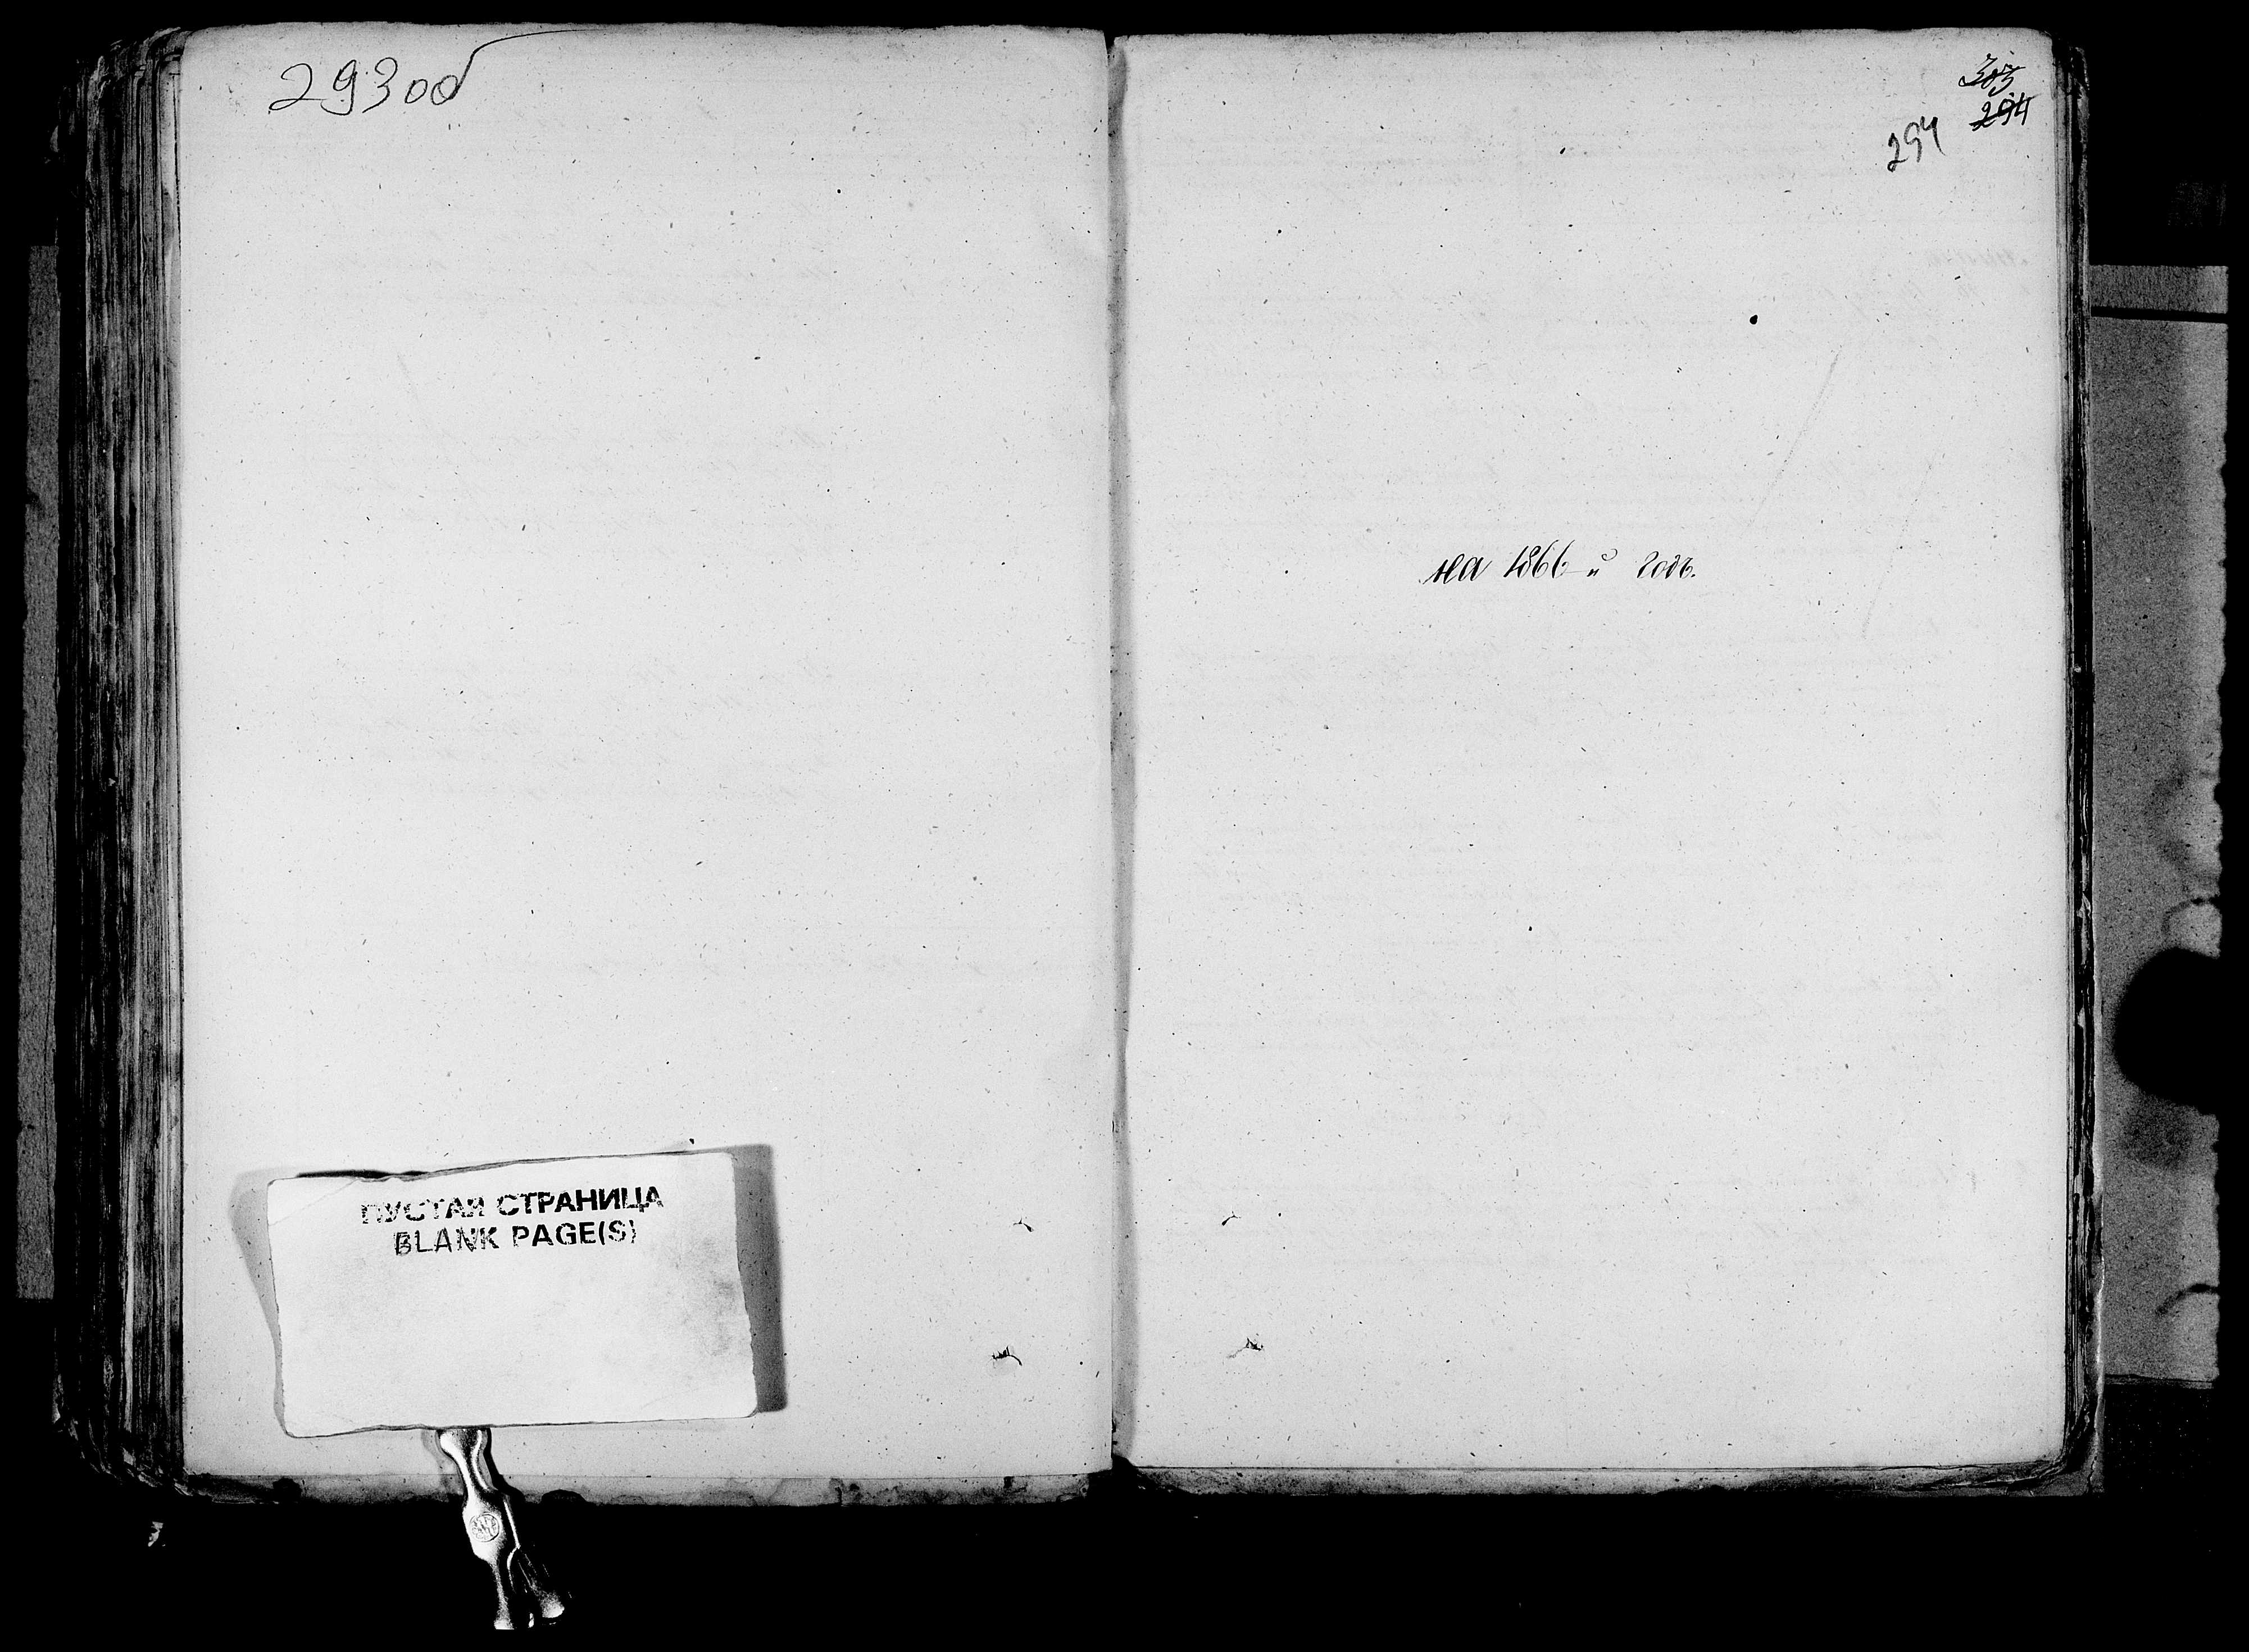 293об
ПУСТАЯ СТРАНИЦА
BLANK PAGE(S)
303
294
294
на 1866-й годъ.